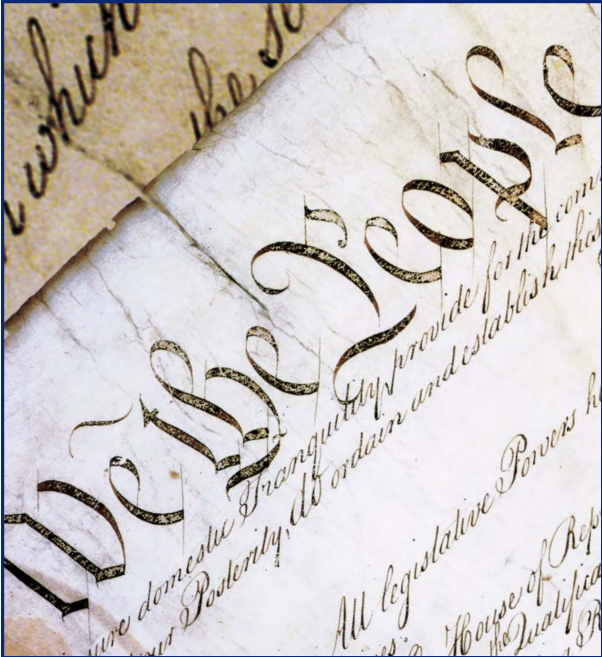 which
the se
We the People
sure domestic Tranquility, provide for the com
our Posterity, do ordain and establish this
All legislative Powers h
House of Rep
the Qualifica